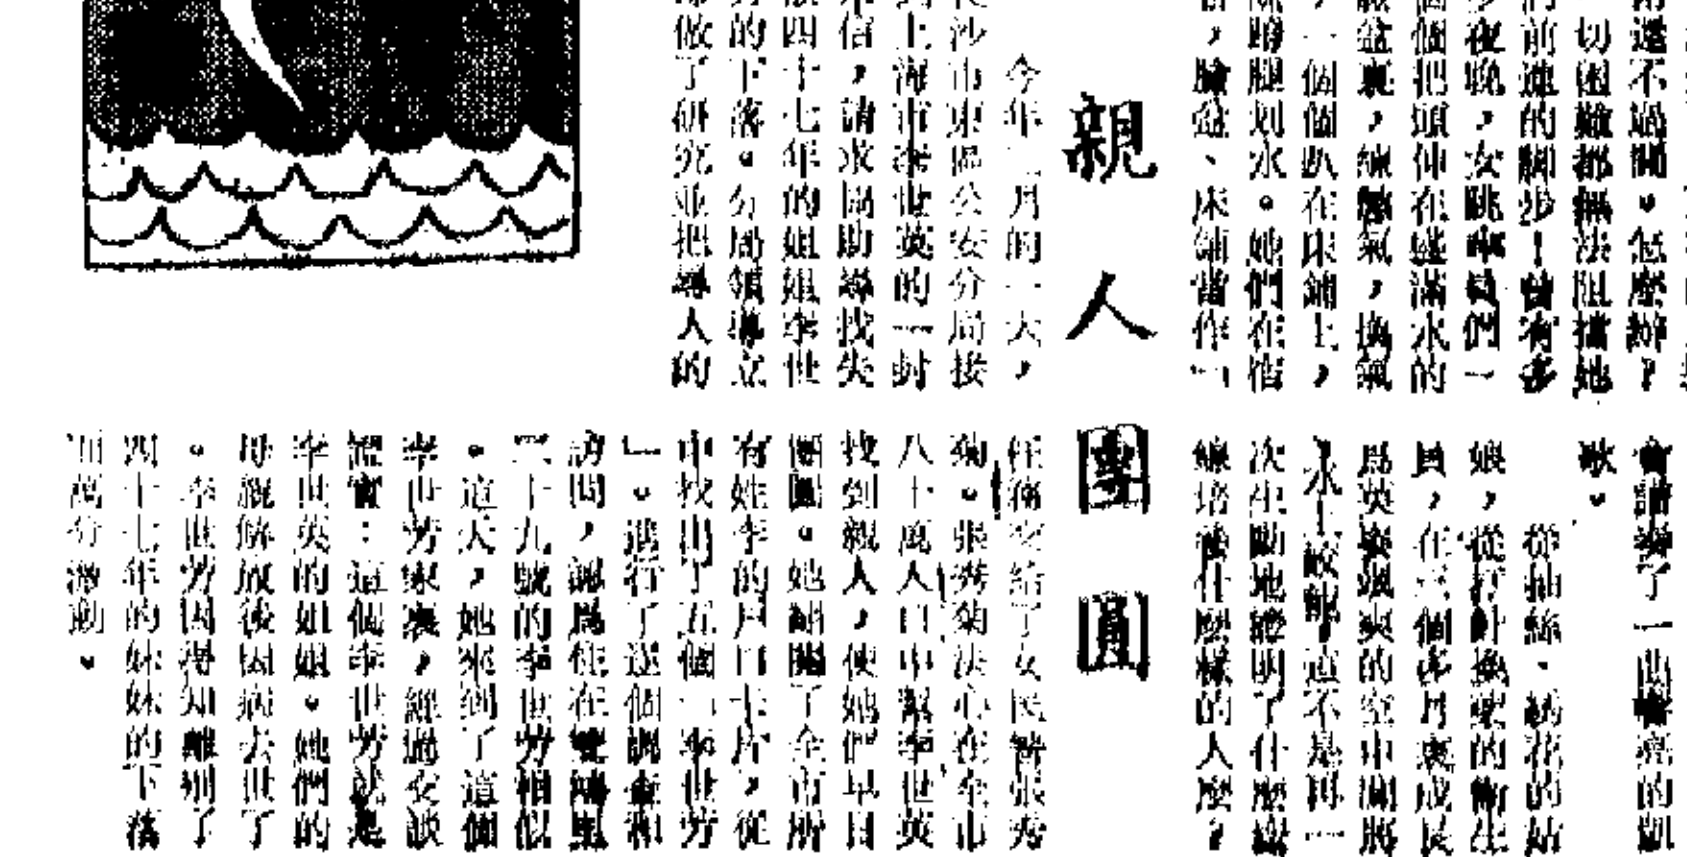 還不過關。怎麼辦?
切困難都無法阻擋她
們前進的腳步!曾有多
少夜晚,女跳傘員們一
個個把頭伸在盛滿水的
臉盆裏,練憋氣,換氣
,一個個趴在床鋪上,
蹬腿划水。她們在宿
,臉盆、床鋪當作「
會譜寫了一曲嘹亮的凱
歌。
從抽絲、綉花的姑
娘,從打針換藥的衛生
員,在三個多月裏成長
爲英姿颯爽的空中闖將
、水上蛟龍,這不是再一
次生動地證明了什麼
線培養什麼樣的人麼?
親人團圓
今年二月的一天,
長沙市東區公安分局接
到上海市李世英的一封
來信,請求協助尋找失
散四十七年的姐姐李世
芳的下落。分局領導立
即做了研究並把尋人的
任務交給了女民警張秀
菊。張秀菊決心在全市
八十萬人口中幫李世英
找到親人,使她們早日
團圓。她翻閱了全市所
有姓李的戶口卡片,從
中找出了五個「李世芳
」。進行了逐個調查和
訪問,認爲住在雙鴻里
二十九號的李世芳相似
。這天,她來到了這個
李世芳家裏,經過交談
證實:這個李世芳就是
李世英的姐姐。她們的
母親解放後因病去世了
。李世芳因得知離別了
四十七年的妹妹的下落
而萬分激動。